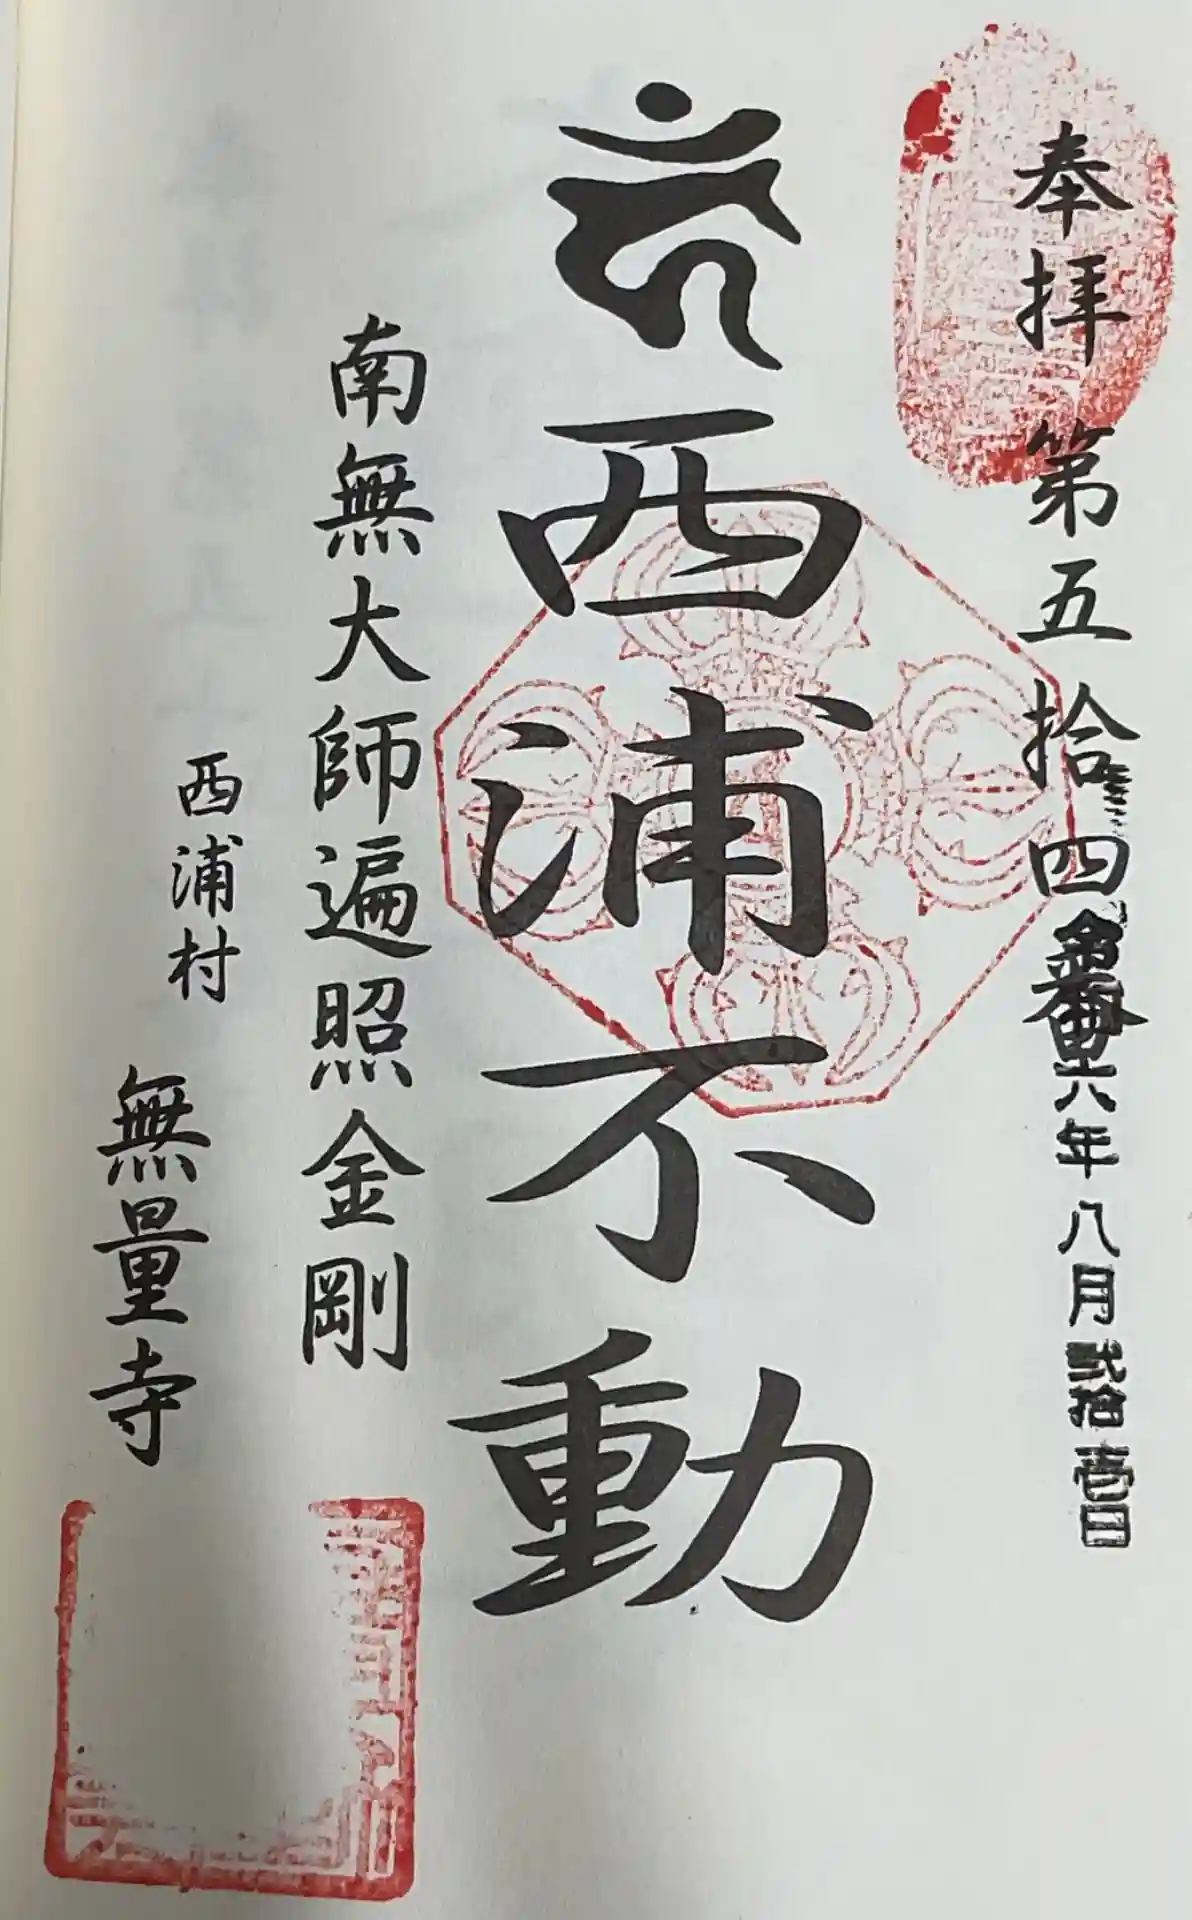 奉拝 第五拾四番
六年八月弐拾壱日
西浦不動
南無大師遍照金剛
西浦村
無量寺